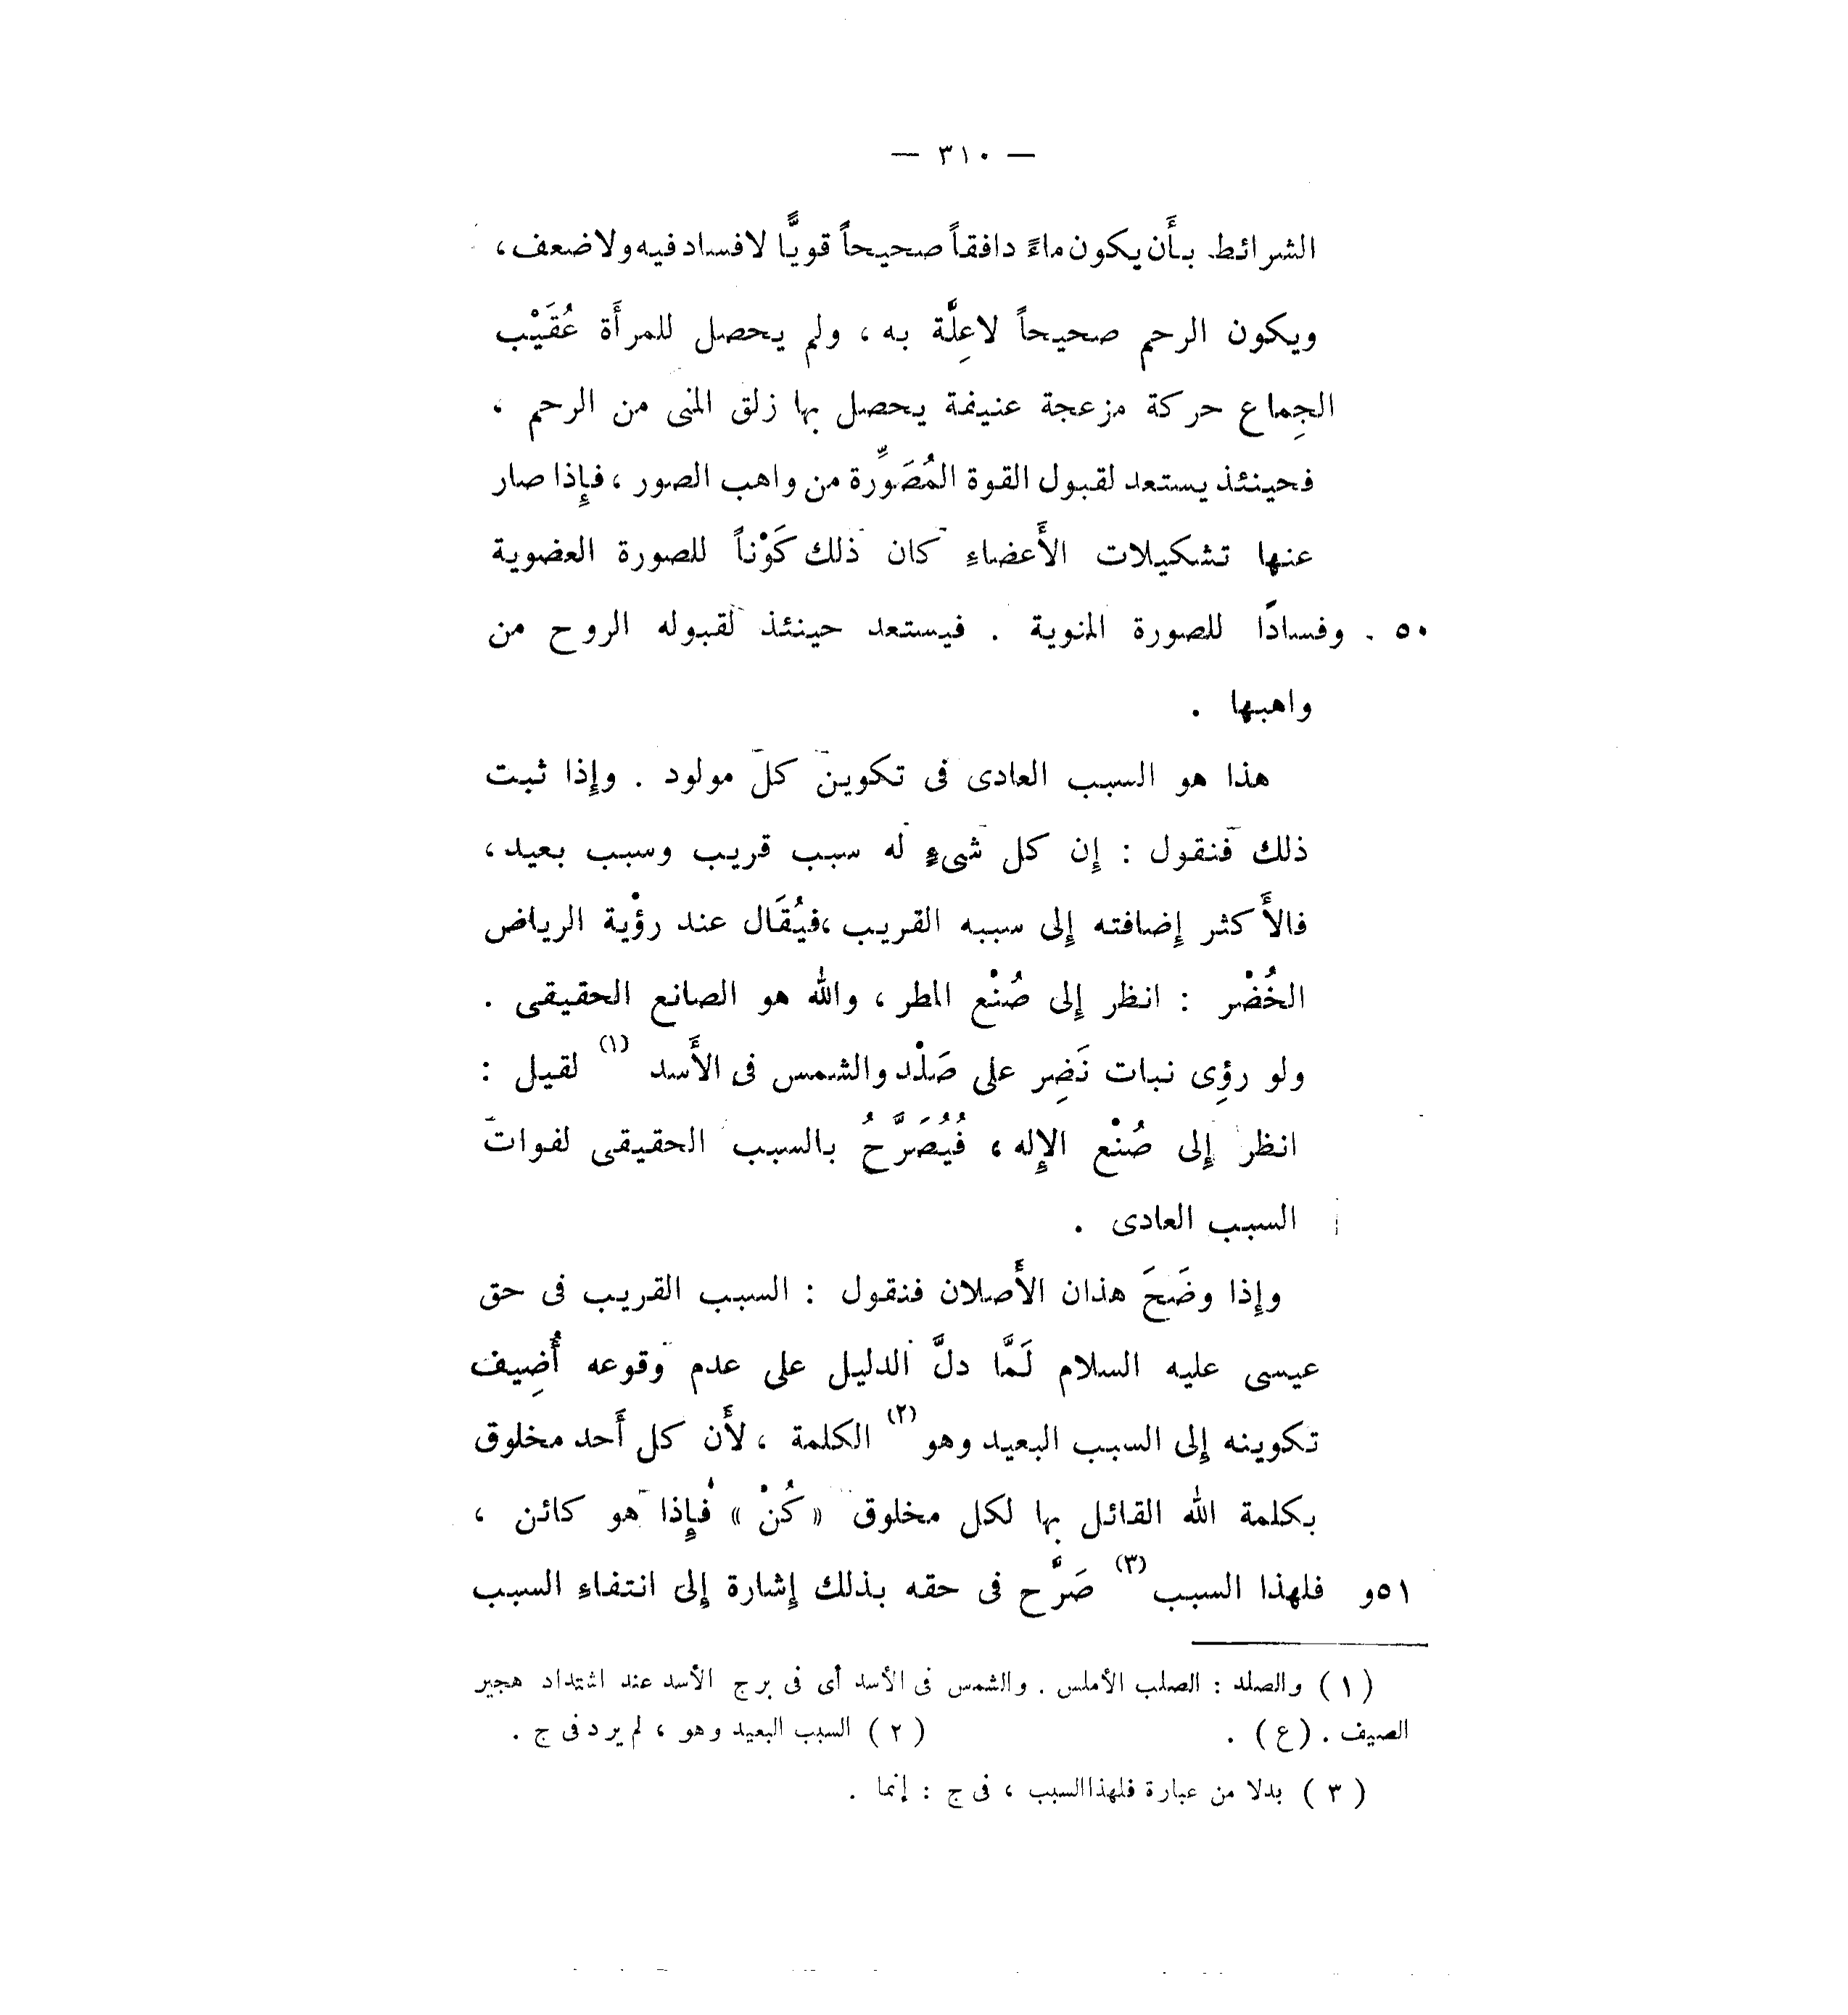 — ٣١٠ —
الشرائط بأَن يكون ماءً دافقاً صحيحاً قويًّا لافساد فيه ولاضعف ،
ويكون الرحم صحيحاً لاعِلَّة به ، ولم يحصل للمرأَة عُقَيْب
الجِماع حركة مزعجة عنيفة يحصل بها زلق المنى من الرحم ،
فحينئذ يستعد لقبول القوة المُصَوِّرة من واهب الصور ، فإِذا صار
عنها تشكيلات الأَعضاءِ كان ذلك كَوْناً للصورة العضوية
٥٠ . وفسادًا للصورة المنوية . فيستعد حينئذ لقبوله الروح من
واهبها .
هذا هو السبب العادى فى تكوين كل مولود . وإِذا ثبت
ذلك فنقول : إِن كل شىءٍ له سبب قريب وسبب بعيد ،
فالأَكثر إِضافته إِلى سببه القريب ،فيُقَال عند رؤْية الرياض
الخُضْر : انظر إِلى صُنْع المطر ، والله هو الصانع الحقيقى .
ولو رؤِى نبات نَضِر على صَلْد والشمس فى الأَسد (١) لقيل :
انظر إِلى صُنْع الإِله ، فُيُصَرَّحُ بالسبب الحقيقى لفوات
السبب العادى .
وإِذا وضَحَ هذان الأَصلان فنقول : السبب القريب فى حق
عيسى عليه السلام لَمَّا دلَّ الدليل على عدم وقوعه أُضِيف
تكوينه إِلى السبب البعيد وهو (٢) الكلمة ، لأَن كل أَحد مخلوق
بكلمة الله القائل بها لكل مخلوق « كُنْ » فإِذا هو كائن ،
٥١و فلهذا السبب (٣) صَرَّح فى حقه بذلك إِشارة إِلى انتفاءِ السبب
(١) والصلد : الصلب الأملس . والشمس فى الأسد أى فى برج الأسد عند اشتداد هجير
الصيف . (ع) . (٢) السبب البعيد وهو ، لم يرد فى ج .
(٣) بدلا من عبارة فلهذا السبب ، فى ج : إنما .